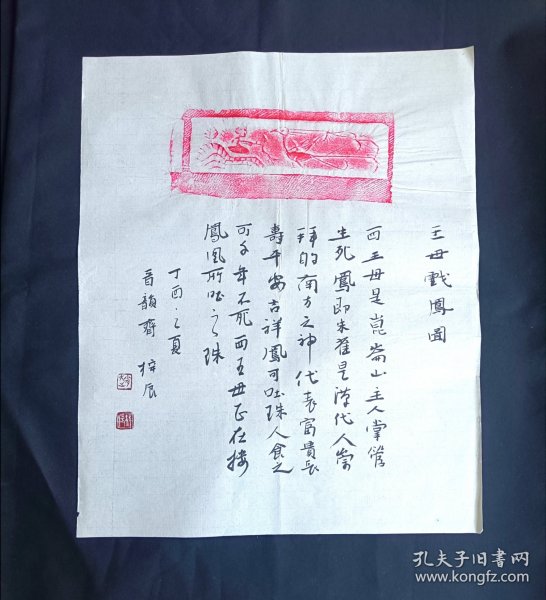 王母戲鳳圖
西王母是崑崙山主人掌管
生死鳳即朱雀是漢代人崇
拜的南方之神代表富貴長
壽平安吉祥鳳可吐珠人食之
可千年不死西王母正在接
鳳凰所吐之珠
丁酉之夏
晋韻齋 梓辰
孔夫子旧书网
www.kongfz.com